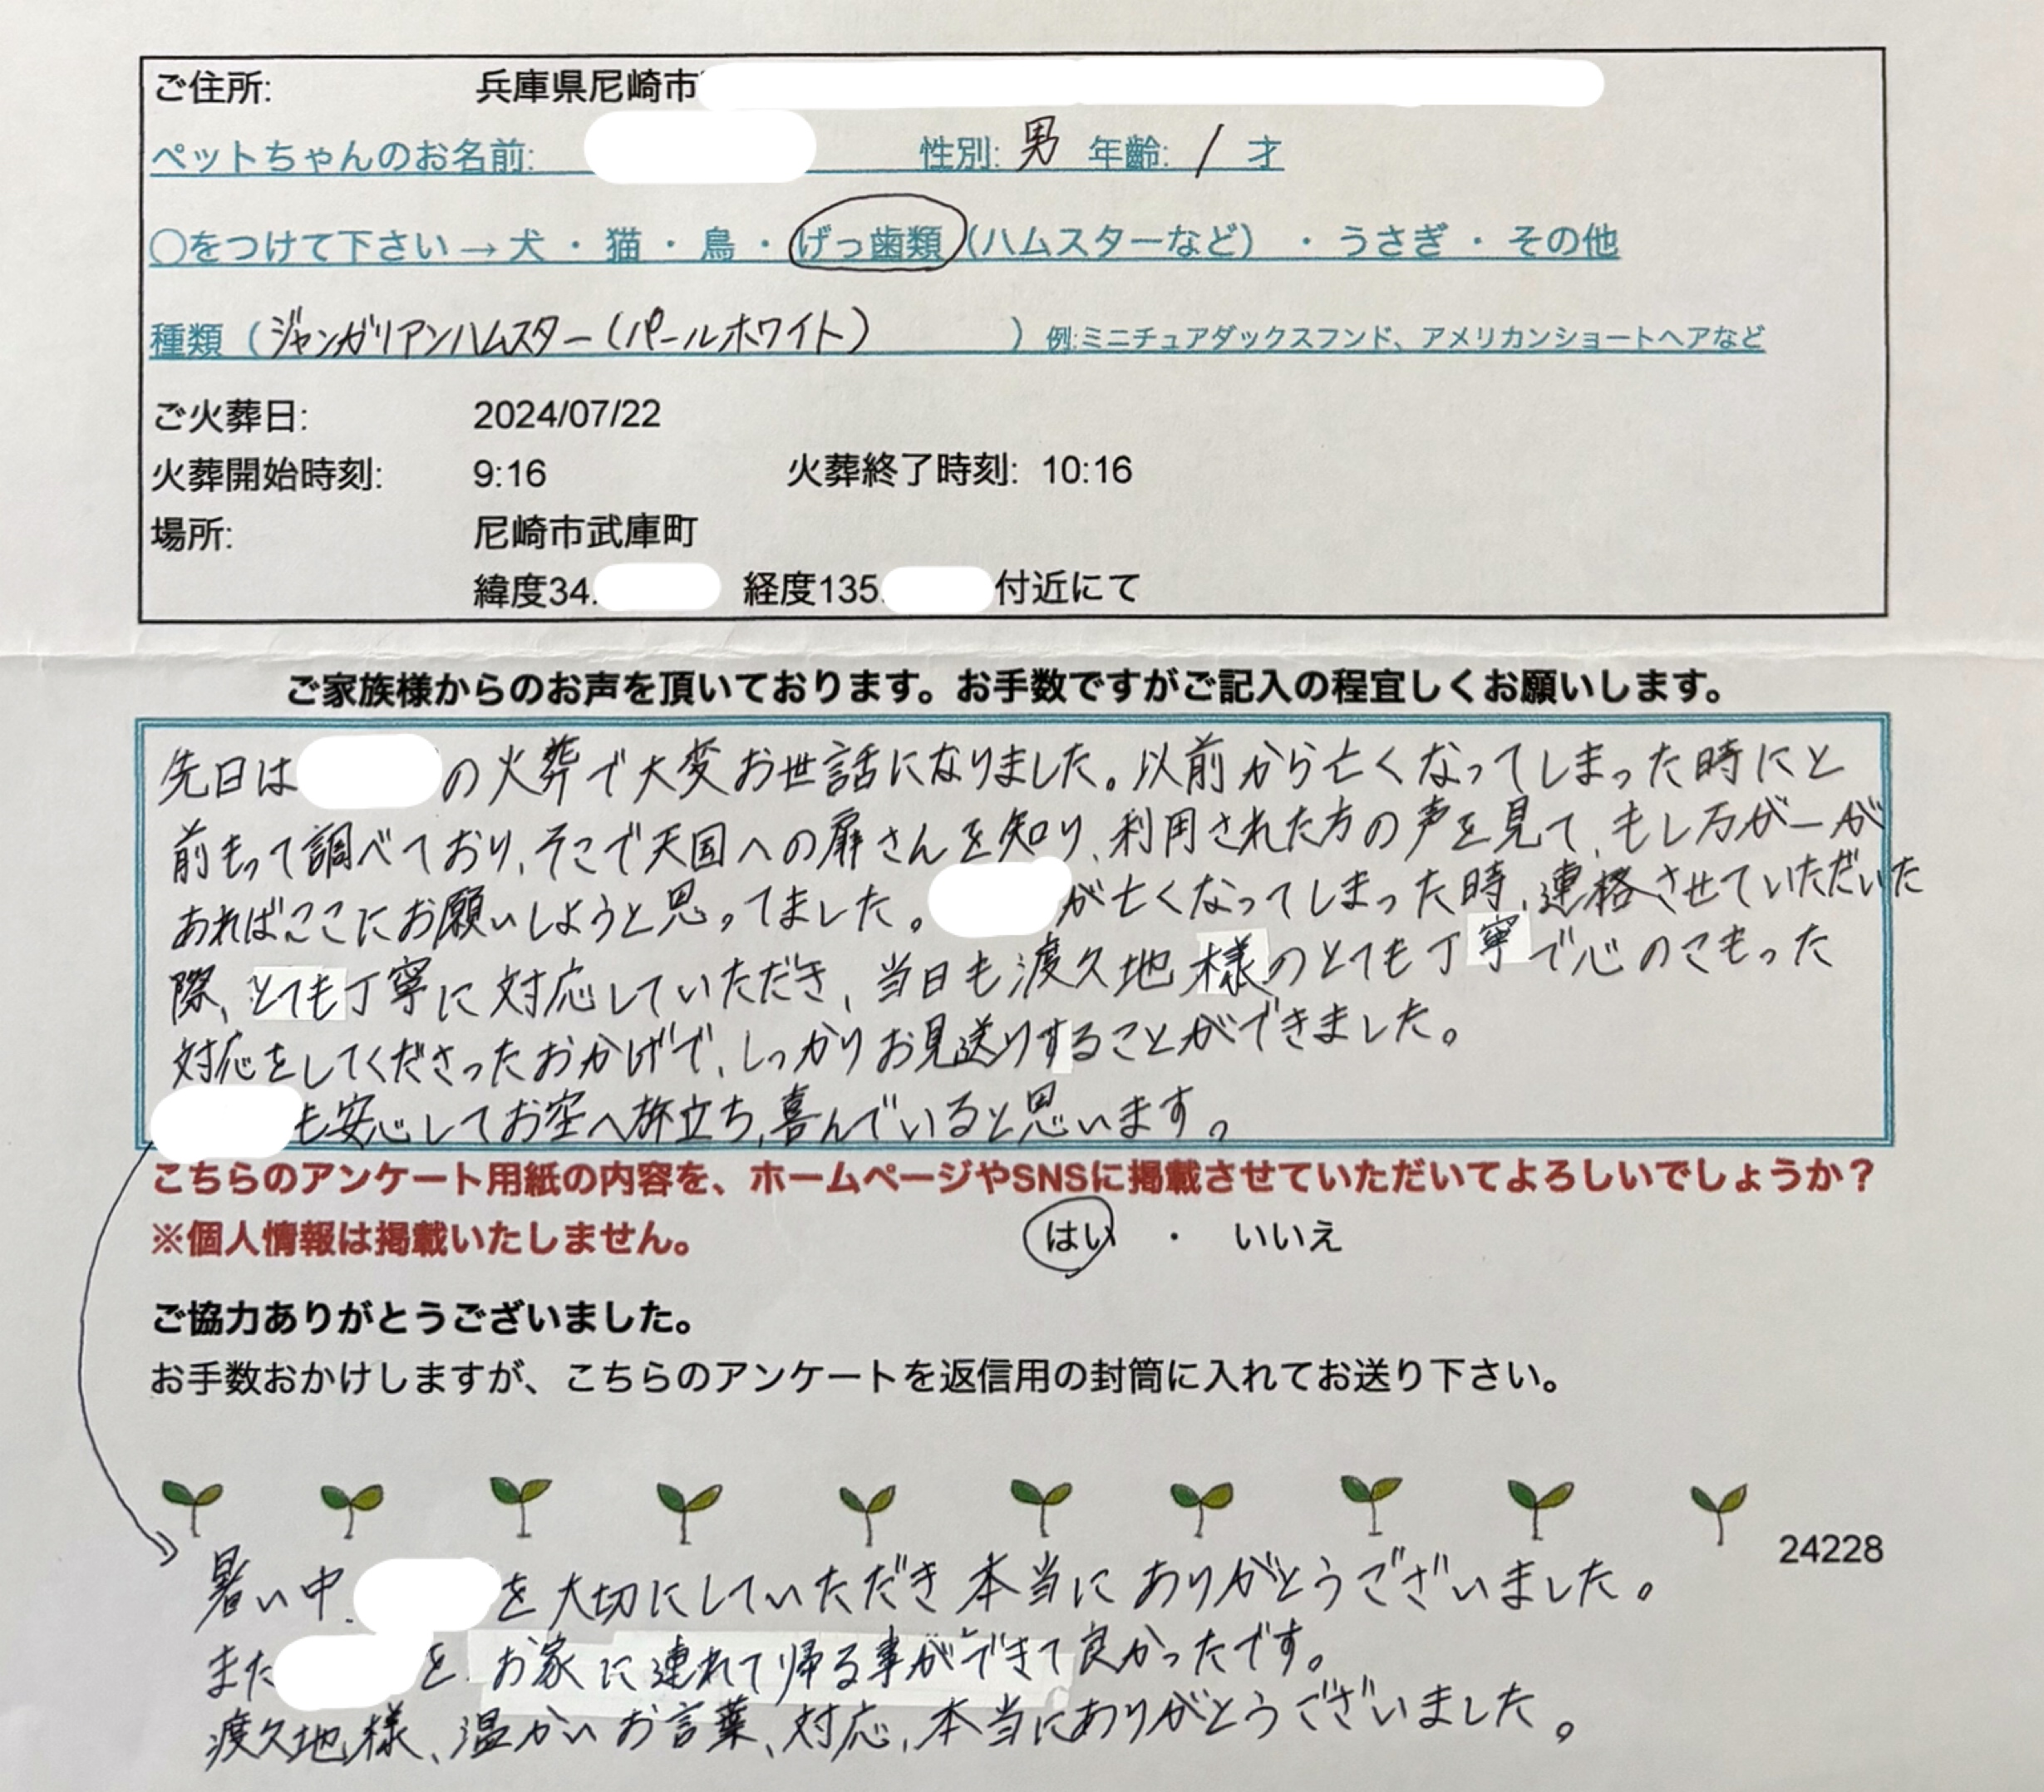 ご住所: 兵庫県尼崎市
ペットちゃんのお名前: 性別: 男 年齢: 1 才
○をつけて下さい→犬・猫・鳥・げっ歯類(ハムスターなど)・うさぎ・その他
種類(ジャンガリアンハムスター(パールホワイト) )例:ミニチュアダックスフンド、アメリカンショートヘアなど
ご火葬日: 2024/07/22
火葬開始時刻: 9:16 火葬終了時刻: 10:16
場所: 尼崎市武庫町
緯度34. 経度135. 付近にて
ご家族様からのお声を頂いております。お手数ですがご記入の程宜しくお願いします。
先日は の火葬で大変お世話になりました。以前から亡くなってしまった時にと
前もって調べており、そこで天国への扉さんを知り、利用された方の声を見て、もし万が一が
あればここにお願いしようと思ってました。 が亡くなってしまった時、連絡させていただいた
際、とても丁寧に対応していただき、当日も渡久地様のとても丁寧で心のこもった
対応をしてくださったおかげで、しっかりお見送りすることができました。
も安心してお空へ旅立ち、喜んでいると思います。
こちらのアンケート用紙の内容を、ホームページやSNSに掲載させていただいてよろしいでしょうか?
※個人情報は掲載いたしません。 はい ・ いいえ
ご協力ありがとうございました。
お手数おかけしますが、こちらのアンケートを返信用の封筒に入れてお送り下さい。
24228
暑い中、 を大切にしていただき本当にありがとうございました。
また を お家に連れて帰る事ができて良かったです。
渡久地様、温かいお言葉、対応、本当にありがとうございました。